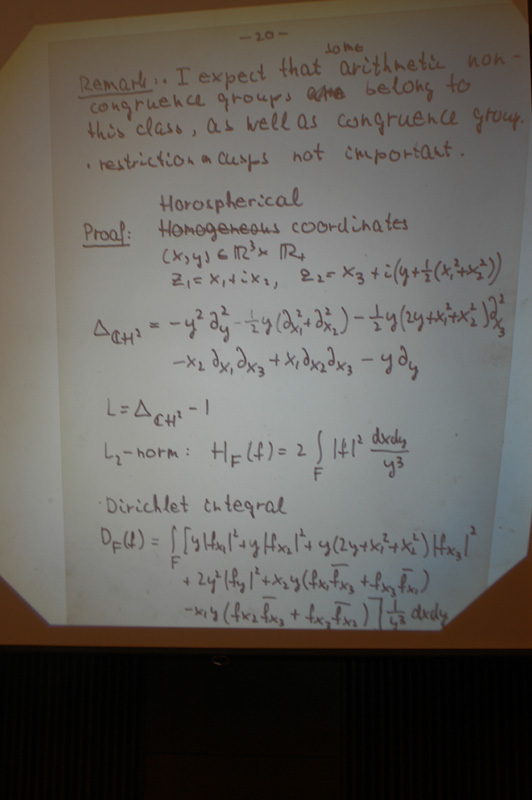 -20-
some
Remark:. I expect that arithmetic non-
congruence groups are belong to
this class, as well as congruence group.
. restriction on cusps not important.
Horospherical
Proof: Homogeneous coordinates
(x,y) ∈ ℝ³ × ℝ₊
z₁ = x₁ + ix₂, z₂ = x₃ + i(y + ½(x₁² + x₂²))
Δ_ℂH² = -y² ∂²_y - ½y(∂²_x₁ + ∂²_x₂) - ½y(2y + x₁² + x₂²)∂²_x₃
-x₂ ∂_x₁ ∂_x₃ + x₁ ∂_x₂ ∂_x₃ - y ∂_y
L = Δ_ℂH² - 1
L₂-norm: H_F(f) = 2 ∫_F |f|² dxdy/y³
Dirichlet integral
D_F(f) = ∫_F [y|f_x₁|² + y|f_x₂|² + y(2y + x₁² + x₂²)|f_x₃|²
+ 2y²|f_y|² + x₂y(f_x₁ f̄_x₃ + f_x₃ f̄_x₁)
-x₁y(f_x₂ f̄_x₃ + f_x₃ f̄_x₂)] 1/y³ dxdy